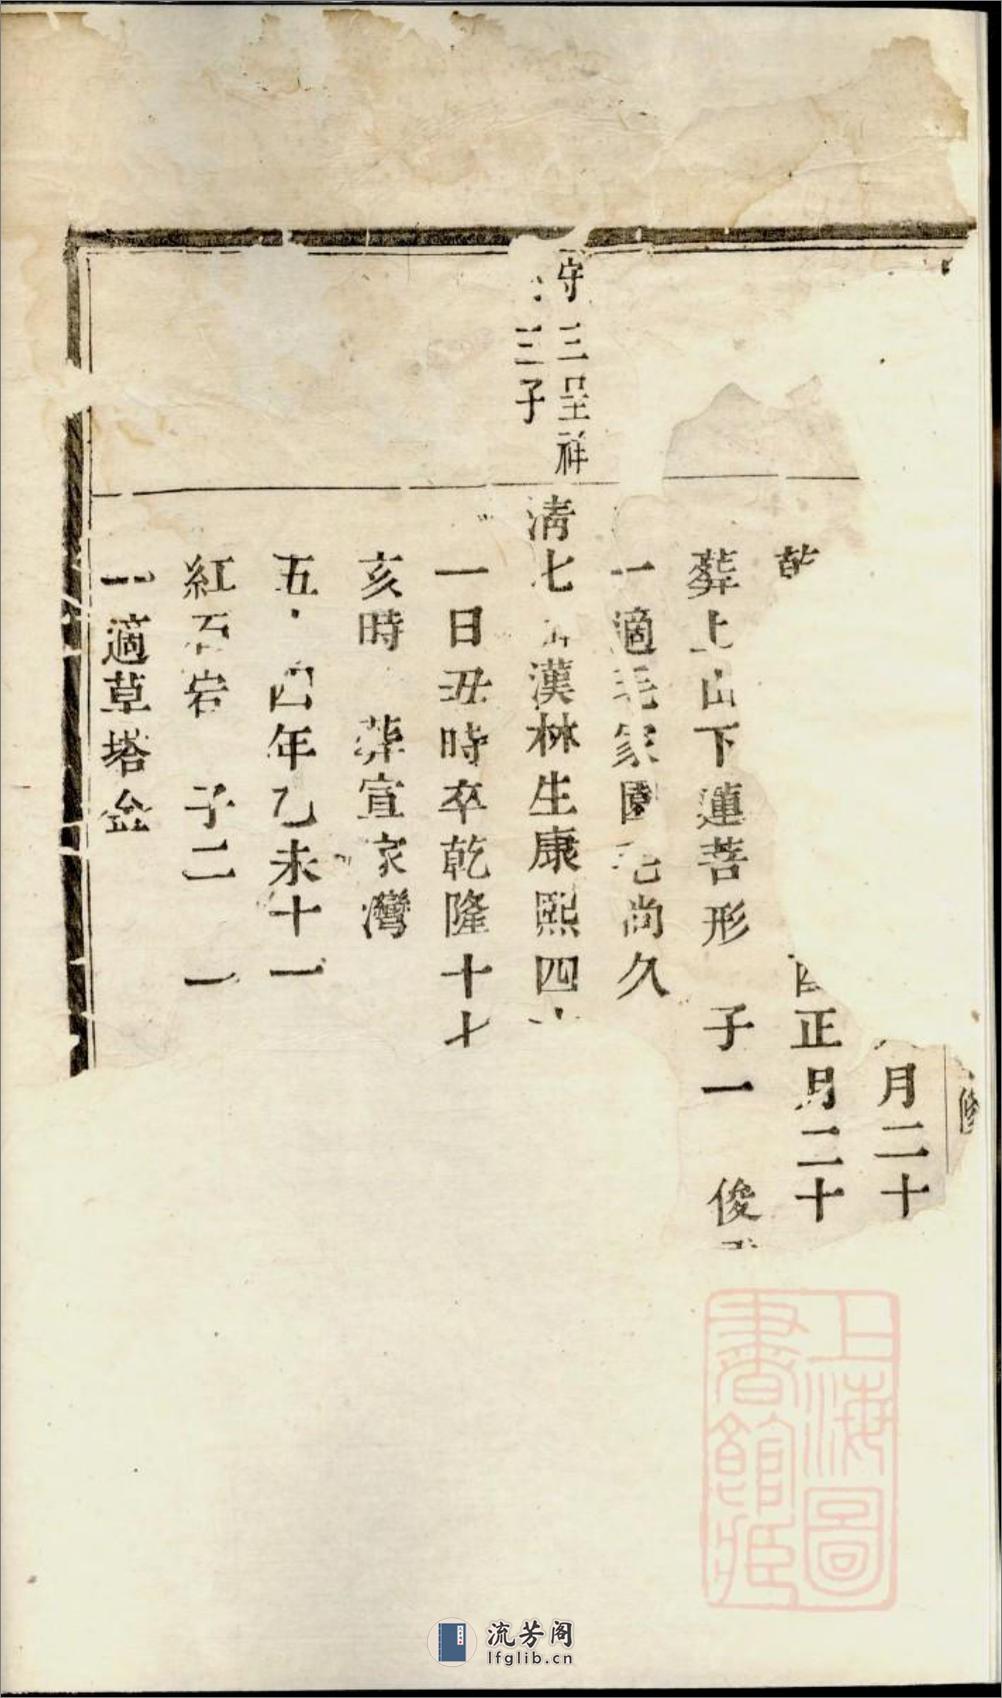 修
月二十
乾
正月二十
葬上山下蓮菩形 子一 俊
一適毛家園毛尚久
守三呈祥
三子
清七 漢林生康熙四
一日丑時卒乾隆十七
亥時 葬宣家灣
五 四年乙未十一
紅石岩 子二 一
一適草塔金
上海圖
書館藏
流芳阁
lfglib.cn